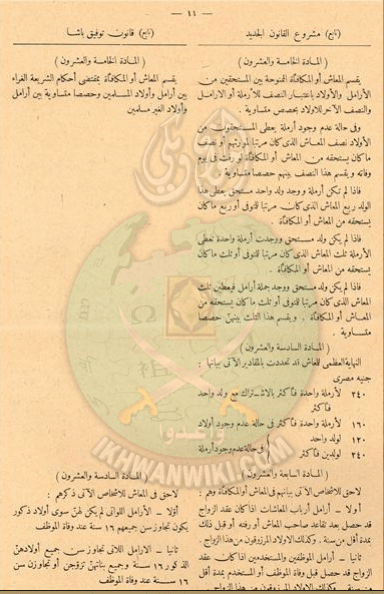 — ١١ —
(تابع) مشروع القانون الجديد
( المادة الخامسة والعشرون )
يقسم المعاش أو المكافأة الممنوحة بين المستحقين من
الأرامل والأولاد باعتبار النصف للأرملة أو الأرامل
والنصف الآخر للاولاد بحصص متساوية .
وفى حالة عدم وجود أرملة يعطى المستحقون من
الأولاد نصف المعاش الذى كان مرتبا لمورثهم أو نصف
ما كان يستحقه من المعاش أو المكافأة لو رفت فى يوم
وفاته ويقسم هذا النصف بينهم حصصا متساوية .
فاذا لم تكن أرملة ووجد ولد واحد مستحق يعطى هذا
الولد ربع المعاش الذى كان مرتبا للمتوفى أو ربع ما كان
يستحقه من المعاش أو المكافأة .
فاذا لم يكن ولد مستحق ووجدت أرملة واحدة تعطى
الأرملة ثلث المعاش الذى كان مرتبا للمتوفى أو ثلث ما كان
يستحقه من المعاش أو المكافأة .
فاذا لم يكن ولد مستحق ووجد جملة أرامل فيعطين ثلث
المعاش الذى كان مرتبا للمتوفى أو ثلث ما كان يستحقه من
المعاش أو المكافأة . ويقسم هذا الثلث بينهن حصصا
متساوية .
( المادة السادسة والعشرون )
النهاية العظمى للمعاش قد تحددت بالمقادير الآتى بيانها :
جنيه مصرى
٢٤٠ لأرملة واحدة فأكثر بالاشتراك مع ولد واحد
فأكثر
١٦٠ لأرملة واحدة فأكثر فى حالة عدم وجود أولاد
١٢٠ لولد واحد
٢٤٠ لولدين فأكثر
فى حالة عدم وجود أرملة
( المادة السابعة والعشرون )
لا حق للاشخاص الآتى بيانهم فى المعاش أو المكافأة وهم :
أولا — أرامل أرباب المعاشات اذا كان عقد الزواج
قد حصل بعد تقاعد صاحب المعاش أو رفته أو قبل ذلك
بمدة أقل من سنة . وكذلك الاولاد المرزوقون من هذا الزواج .
ثانيا — أرامل الموظفين والمستخدمين اذا كان عقد
الزواج قد حصل قبل وفاة الموظف أو المستخدم بمدة أقل
من سنة . وكذلك الاولاد المرزوقون من هذا الزواج .
(تابع) قانون توفيق باشا
( المادة الخامسة والعشرون )
يقسم المعاش أو المكافأة بمقتضى أحكام الشريعة الغراء
بين أرامل وأولاد المسلمين وحصصا متساوية بين أرامل
وأولاد الغير مسلمين
( المادة السادسة والعشرون )
لا حق فى المعاش للاشخاص الآتى ذكرهم :
أولا — الأرامل اللواتى لم يكن لهن سوى أولاد ذكور
يكون تجاوز سن جميعهم ١٦ سنة عند وفاة الموظف
ثانيا — الارامل اللاتى تجاوز سن جميع أولادهن
الذكور ١٦ سنة وجميع بناتهن تزوجن أو تجاوزن سن
١٦ سنة عند وفاة الموظف
وأعدوا
IKHWANWIKI.COM